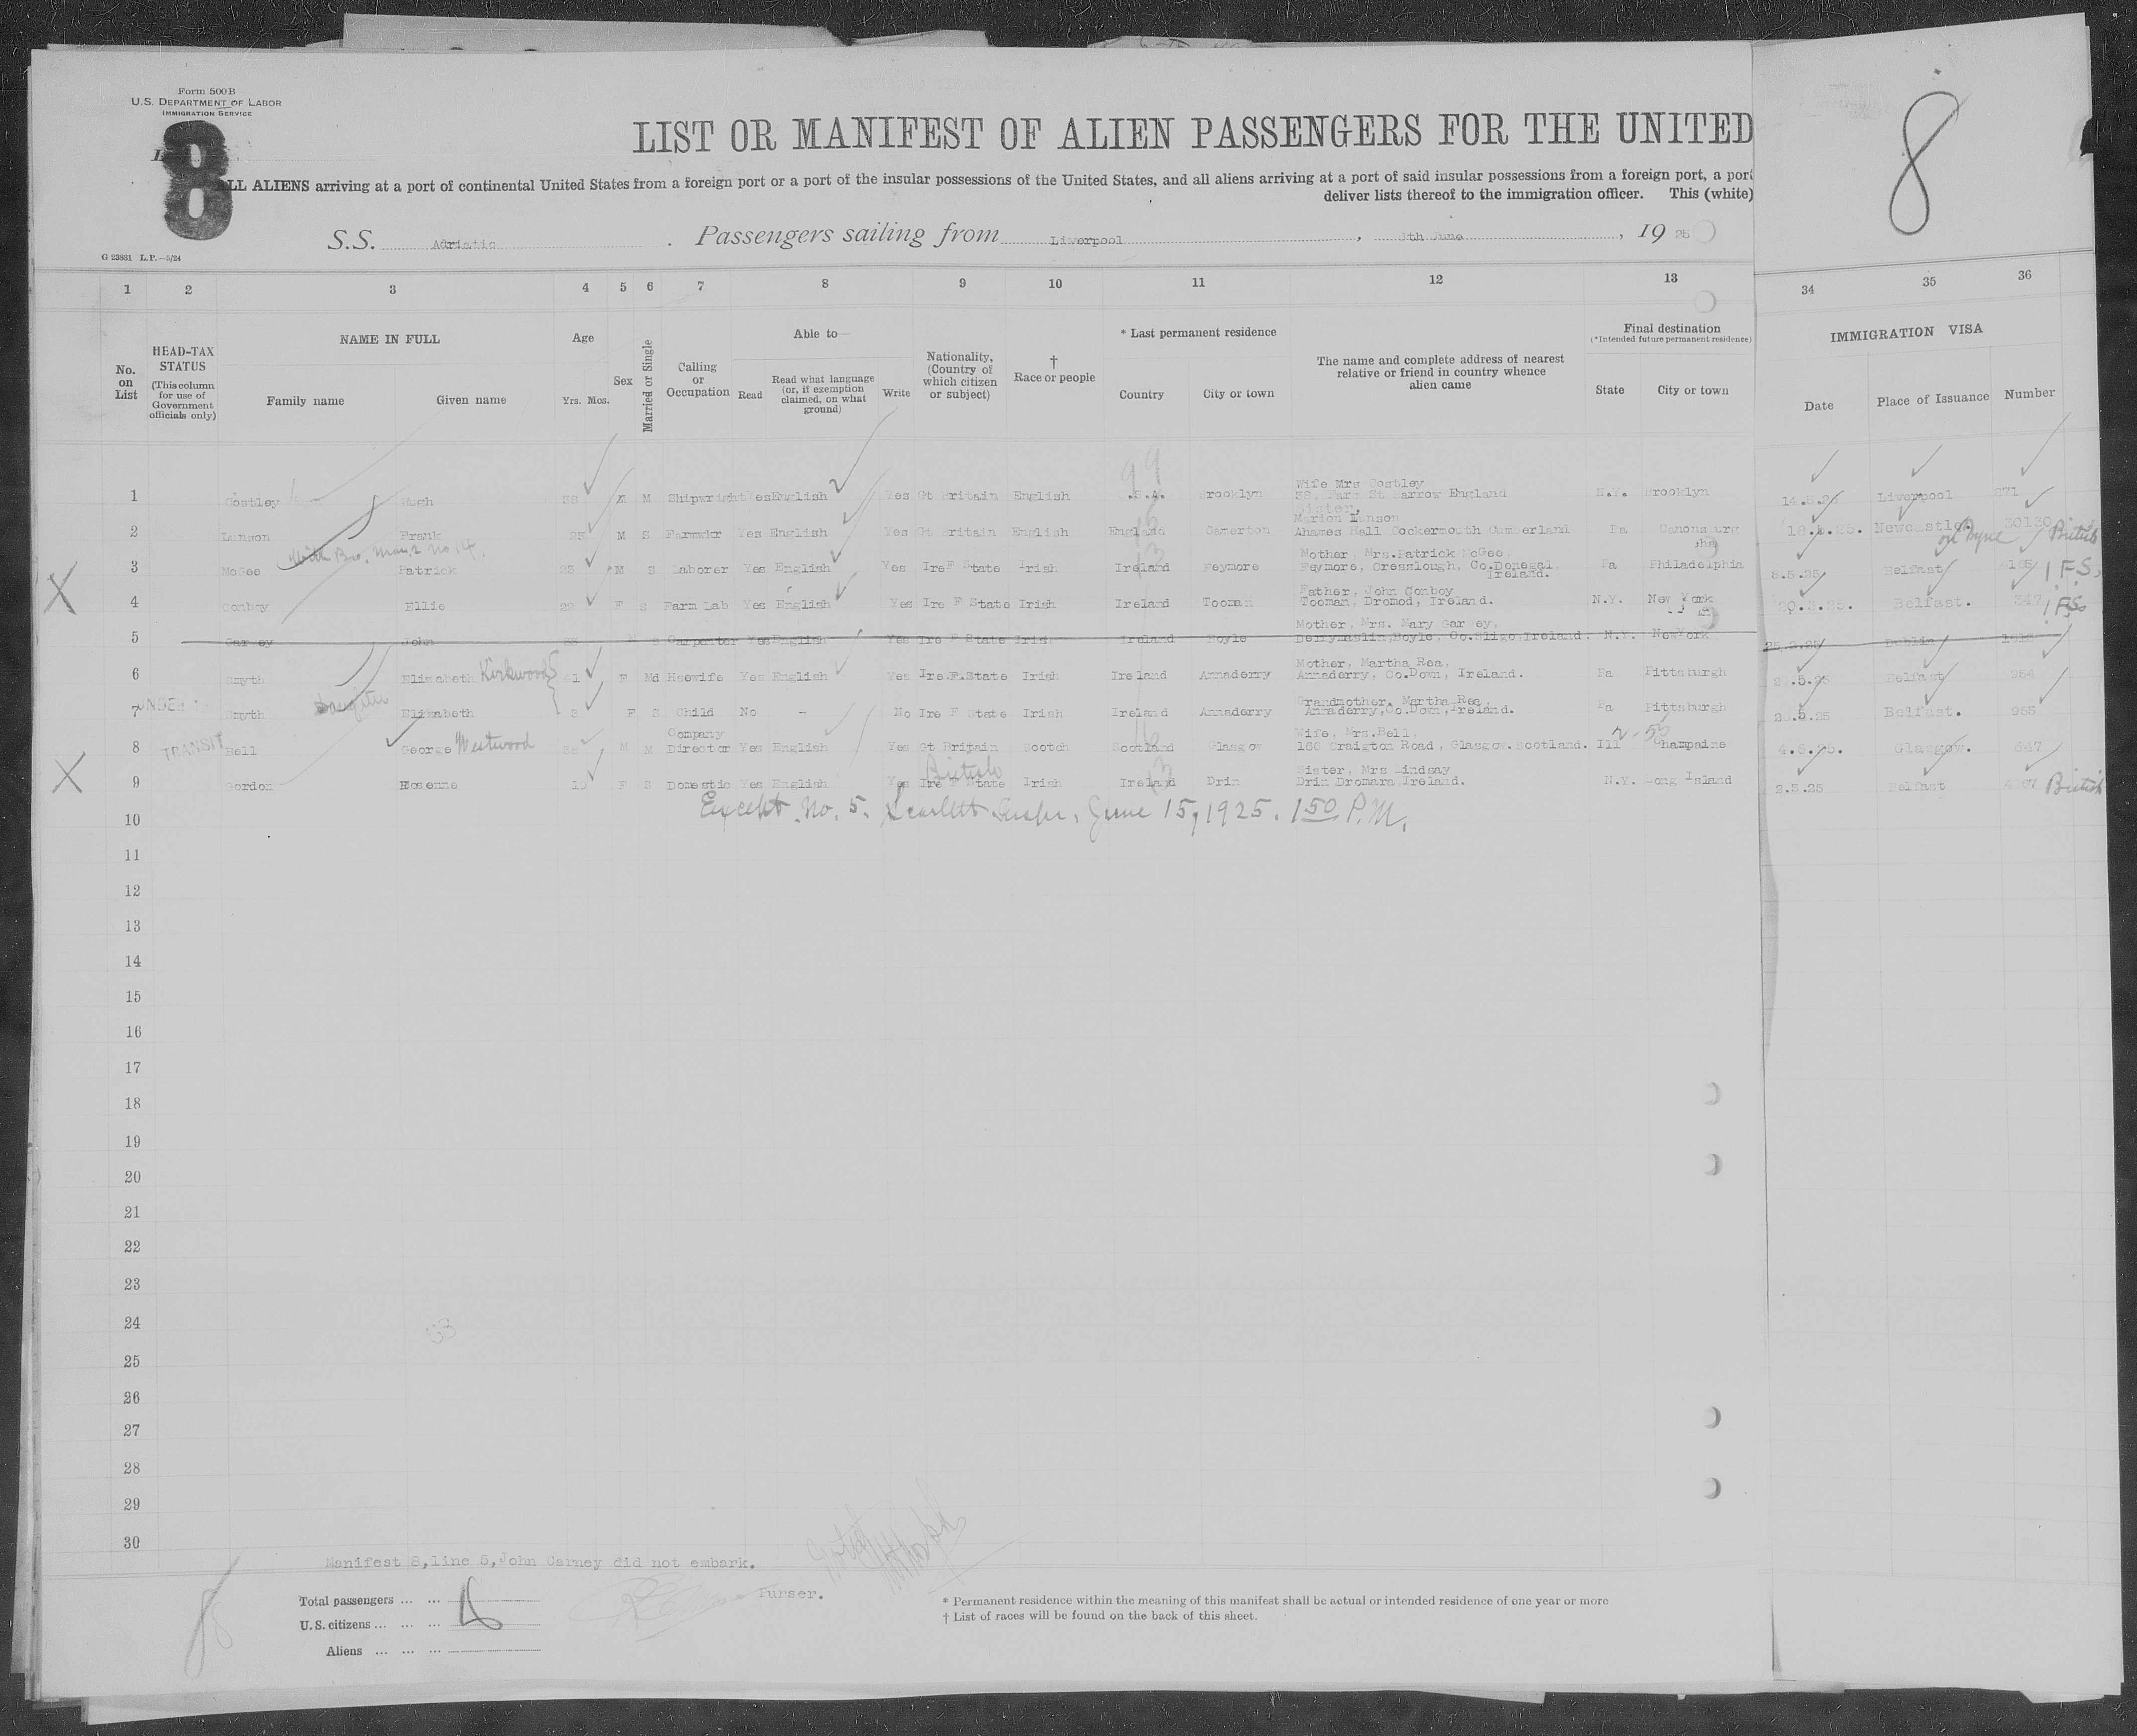 Form 500B
U.S. DEPARTMENT OF LABOR
IMMIGRATION SERVICE
8
LIST OR MANIFEST OF ALIEN PASSENGERS FOR THE UNITED
8
ALL ALIENS arriving at a port of continental United States from a foreign port or a port of the insular possessions of the United States, and all aliens arriving at a port of said insular possessions from a foreign port, a port
deliver lists thereof to the immigration officer. This (white)
S.S. Adriatic . Passengers sailing from Liverpool , 6th June , 1925
G 23881 L.P.—5/24
1 2 3 4 5 6 7 8 9 10 11 12 13 34 35 36
No. on List
HEAD-TAX STATUS
(This column for use of Government officials only)
NAME IN FULL
Family name Given name
Age
Yrs. Mos.
Sex
Married or Single
Calling or Occupation
Able to—
Read Read what language (or, if exemption claimed, on what ground) Write
Nationality, (Country of which citizen or subject)
† Race or people
* Last permanent residence
Country City or town
The name and complete address of nearest relative or friend in country whence alien came
Final destination
(*Intended future permanent residence)
State City or town
IMMIGRATION VISA
Date Place of Issuance Number
99
Wife Mrs Costley
1 Costley Hugh 38 M M Shipwright Yes English Yes Gt Britain English .S.A. Brooklyn 38, Farm St Barrow England N.Y. Brooklyn 14.5.25 Liverpool 271
Sister,
Marion
2 Frank 23 M S Yes English Yes Gt Britain English England Camerton Hall Cockermouth Cumberland Pa Canonsburg 18.5.25. Newcastle on Tyne 30130 British
With Bro. Man 2 No 14.
Mother, Mrs.Patrick McGee.
3 McGee Patrick 25 M S Laborer Yes English Yes Ire F State Irish Ireland Feymore Feymore, Cresslough, Co.Donegal. Ireland. Pa Philadelphia 8.5.25 Belfast I.F.S.
Father, John Conboy
4 Conboy Ellie 22 F S Farm Lab Yes English Yes Ire F State Irish Ireland Tooman Tooman, Dromod, Ireland. N.Y. New York 20.3.25. Belfast. 347 I.F.S.
Mother, Mrs. Mary
5 John M S Carpenter Yes English Yes Ire F State Irish Ireland Boyle Boyle, Co.Sligo, Ireland. N.Y. NewYork Dublin
Mother, Martha Rea,
6 Smyth Elizabeth Kirkwood 41 F Md Hsewife Yes English Yes Ire.F.State Irish Ireland Annaderry Annaderry, Co.Down, Ireland. Pa Pittsburgh 20.5.25 Belfast 954
UNDER daughter
Grandmother, Martha Rea,
7 Smyth Elizabeth 3 F S Child No - No Ire F State Irish Ireland Annaderry Annaderry,Co.Down,Ireland. Pa Pittsburgh 20.5.25 Belfast. 955
Company Wife, Mrs.Bell,
8 TRANSIT Bell George Westwood M M Director Yes English Yes Gt Britain Scotch Scotland Glasgow 166 Craigton Road, Glasgow.Scotland. Ill Champaine 4.6.25. Glasgow. 647
British Sister, Mrs Lindsay
9 Gordon Roseena 19 F S Domestic Yes English Yes Ire F State Irish Ireland Drin Drin Dromara Ireland. N.Y. Long Island 2.5.25 Belfast British
Except No. 5. June 15, 1925. 1 50 P.M.
10
11
12
13
14
15
16
17
18
19
20
21
22
23
24
25
26
27
28
29
30
Manifest 8,line 5,John Carney did not embark.
Purser.
Total passengers ... ...
U.S. citizens ... ... ...
Aliens ... ... ...
* Permanent residence within the meaning of this manifest shall be actual or intended residence of one year or more
† List of races will be found on the back of this sheet.